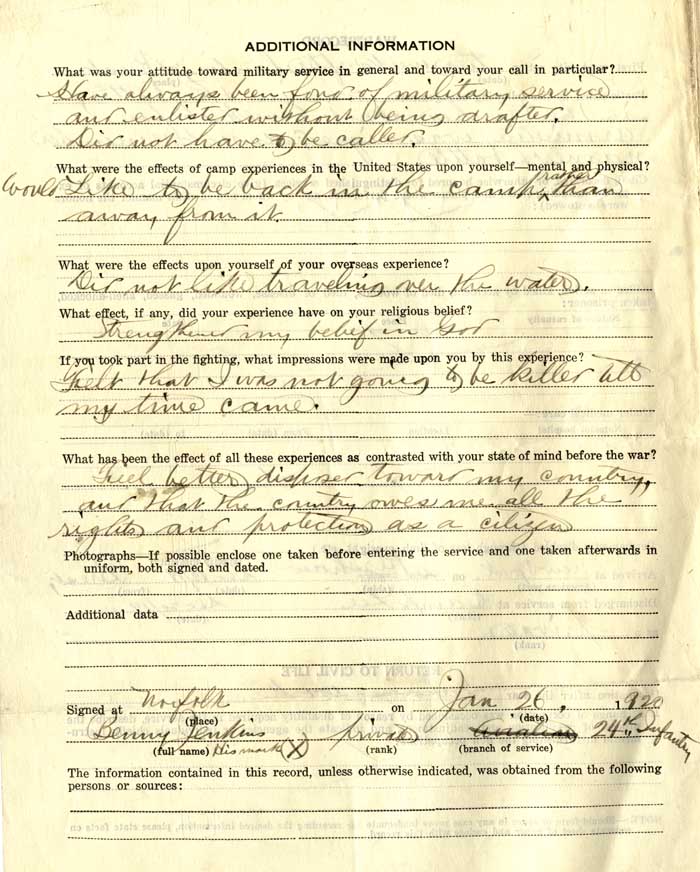 ADDITIONAL INFORMATION
What was your attitude toward military service in general and toward your call in particular?
Have always been fond of military service
and enlisted without being drafted.
Did not have to be called.
What were the effects of camp experiences in the United States upon yourself—mental and physical?
Would Like to be back in the camp, rather than
away from it.
What were the effects upon yourself of your overseas experience?
Did not like traveling over the water.
What effect, if any, did your experience have on your religious belief?
Strengthened my belief in God
If you took part in the fighting, what impressions were made upon you by this experience?
Felt that I was not going to be killed till
my time came.
What has been the effect of all these experiences as contrasted with your state of mind before the war?
Feel better disposed toward my country,
and that the country owes me all the
rights and protection as a citizen
Photographs—If possible enclose one taken before entering the service and one taken afterwards in
uniform, both signed and dated.
Additional data
Signed at Norfolk on Jan 26, 1920
(place) (date)
Benny Jenkins private Aviation 24th Infantry
(full name) His mark X (rank) (branch of service)
The information contained in this record, unless otherwise indicated, was obtained from the following
persons or sources: